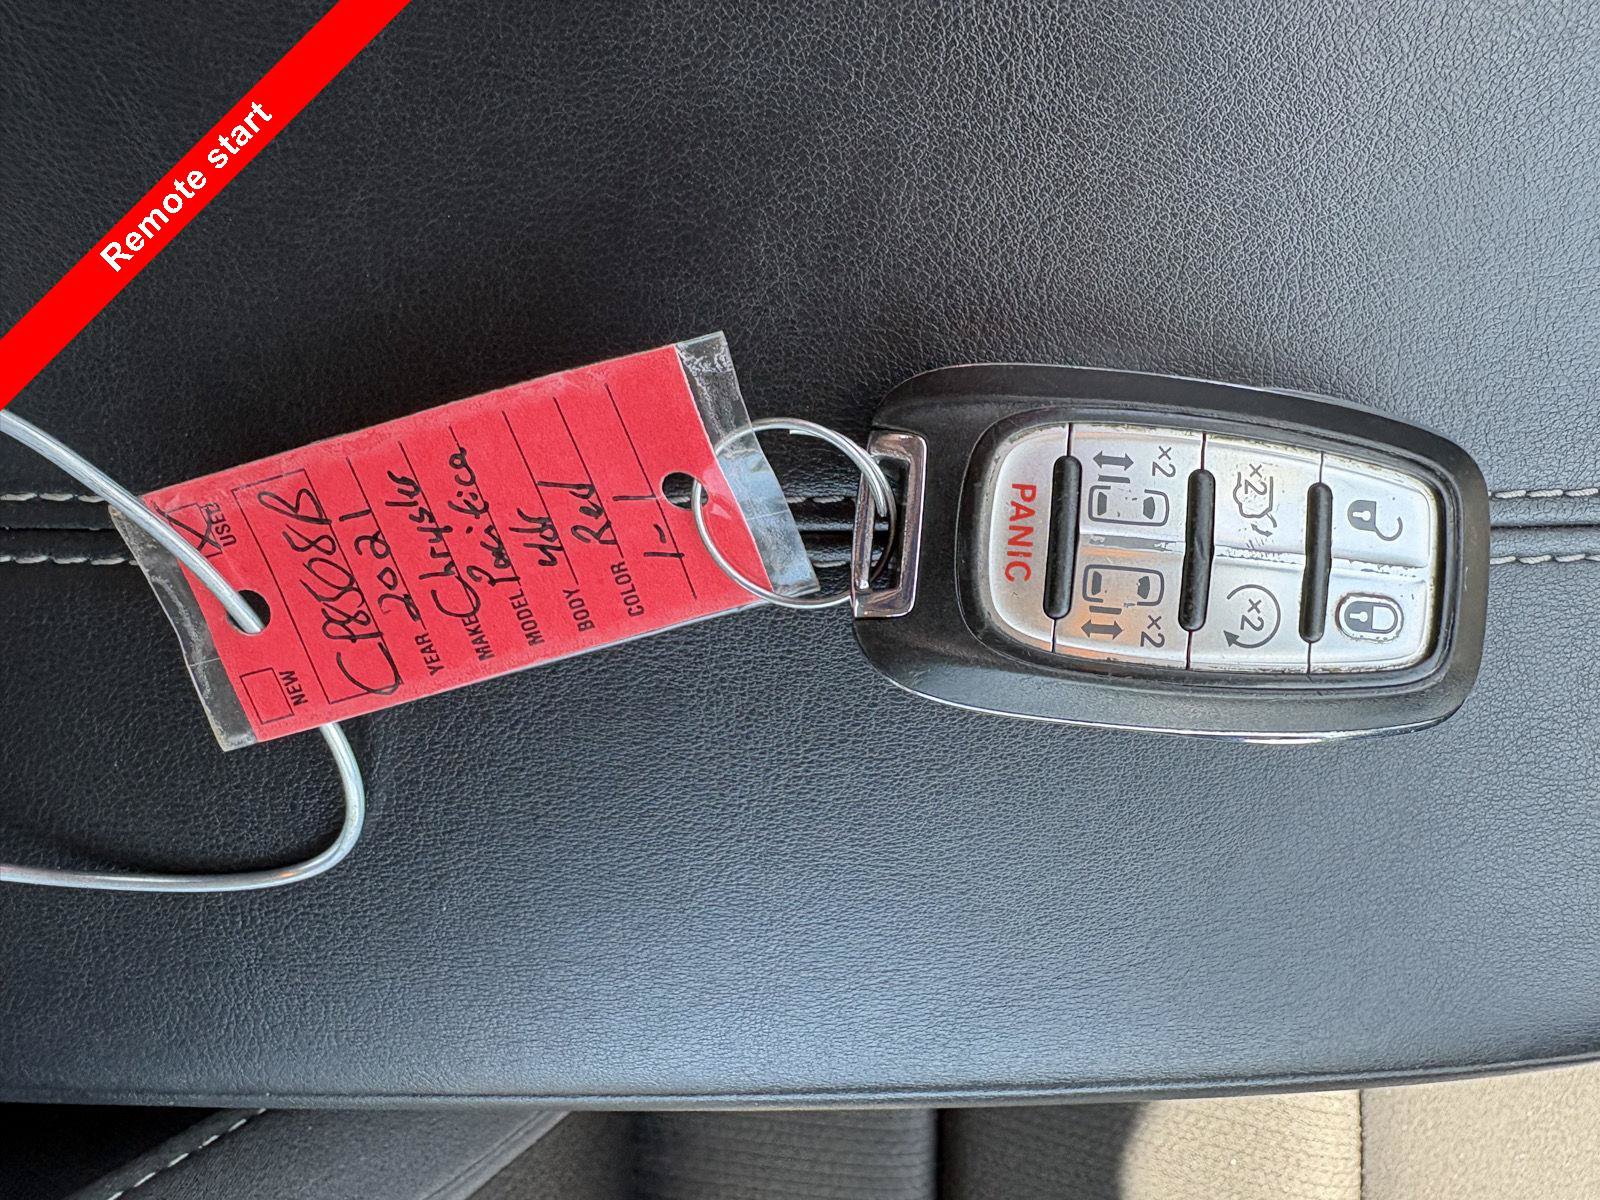 Remote start
NEW
USED
CP8068B
YEAR 2021
MAKE Chrysler
MODEL Pacifica
BODY 4dr
COLOR Red
1-1
PANIC
×2
×2
×2
×2